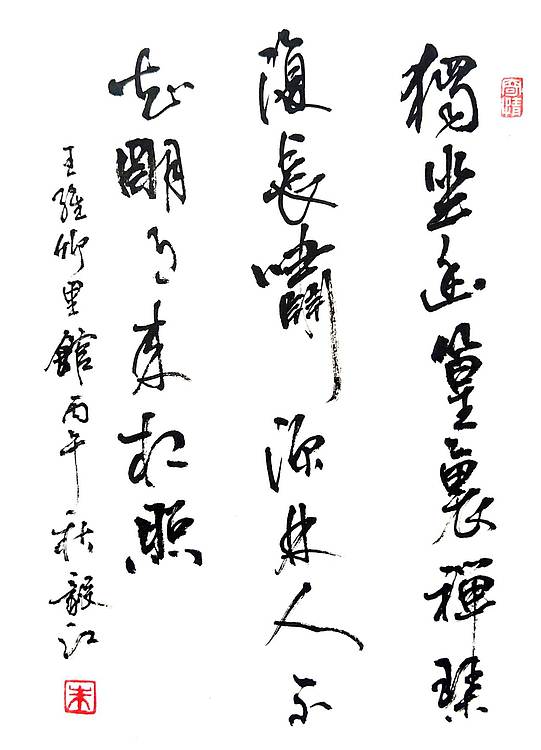 獨坐幽篁裏禪琴
復長嘯深林人不
知朙月來相照
王維竹里館丙午秋毅江
朱